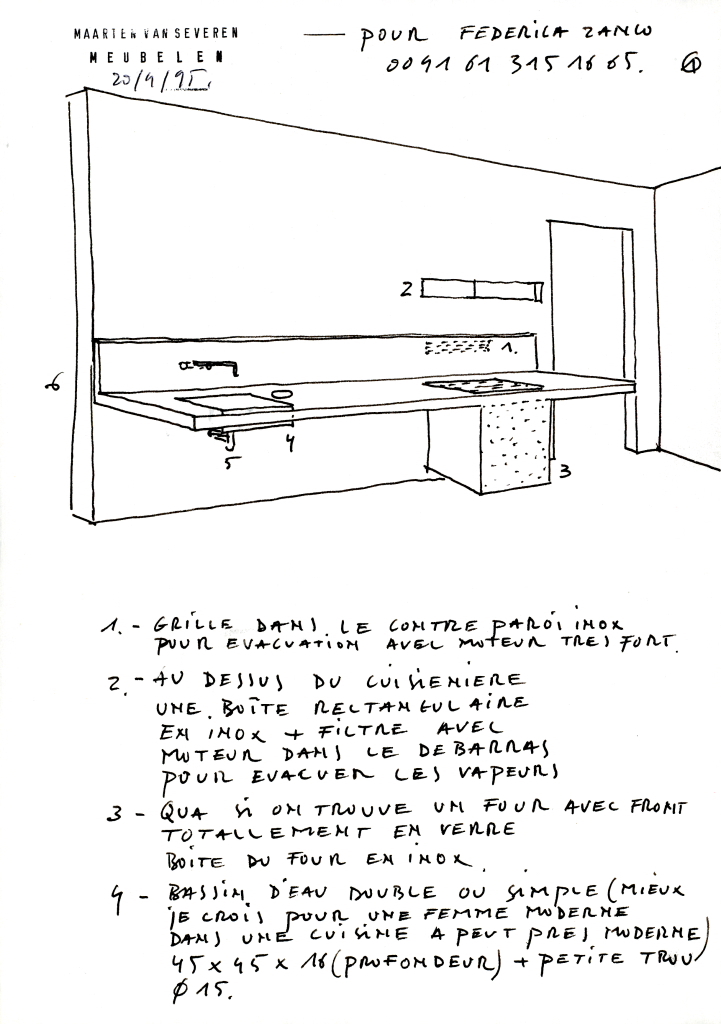 MAARTEN VAN SEVEREN — POUR FEDERICA ZANCO
MEUBELEN 0041 61 315 16 65. 1
20/4/95.
2
1.
6
4
5
3
1. - GRILLE DANS LE CONTRE PAROI INOX
POUR EVACUATION AVEC MOTEUR TRES FORT.
2. - AU DESSUS DU CUISIENIERE
UNE BOÎTE RECTANGULAIRE
EN INOX + FILTRE AVEC
MOTEUR DANS LE DEBARRAS
POUR EVACUER LES VAPEURS
3 - QUA SI ON TROUVE UN FOUR AVEC FRONT
TOTALLEMENT EN VERRE
BOITE DU FOUR EN INOX.
4 - BASSIN D'EAU DOUBLE OU SIMPLE (MIEUX
JE CROIS POUR UNE FEMME MODERNE
DANS UNE CUISINE A PEUT PRES MODERNE)
45 x 45 x 16 (PROFONDEUR) + PETITE TROU
Ø 15.